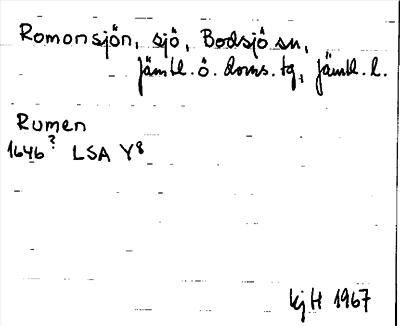 Romonsjön, sjö, Bodsjö sn,
Jämtl. ö. doms. tg, Jämtl. l.
Rumen
1646? LSA Y8
kj H 1967